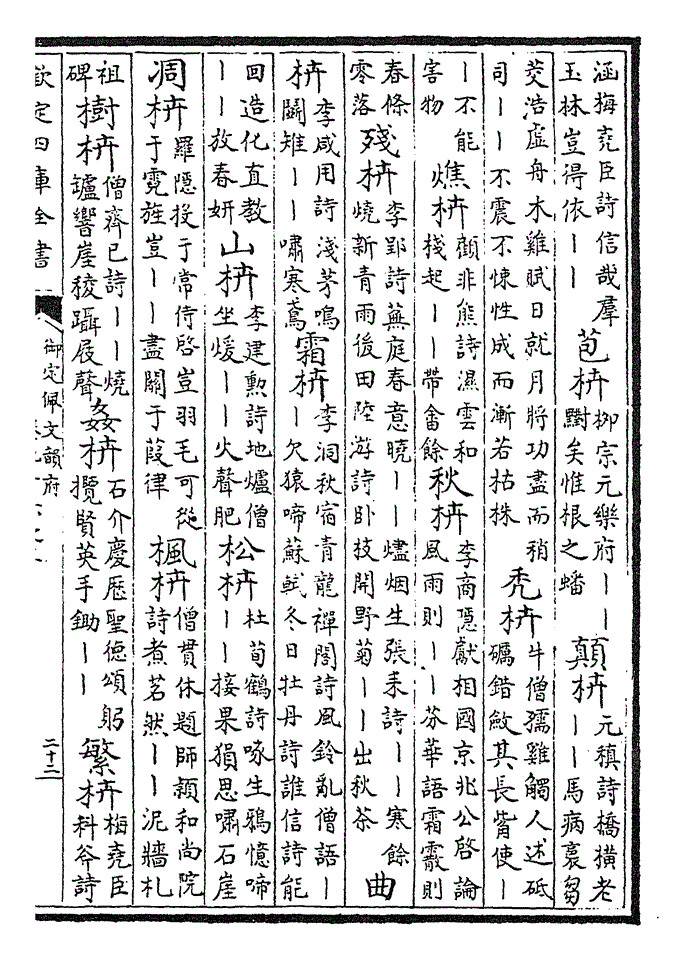 涵梅堯臣詩信哉羣玉林豈得依｜｜苞枿柳宗元樂府｜｜黮矣惟根之蟠顛枿元稹詩橋橫老｜｜馬病裹芻
茭浩虛舟木雞賦日就月將功盡而稍司｜｜不震不悚性成而漸若枯株禿枿牛僧孺雞觸人述砥礪錯敵其長觜使｜
｜不能害物燋枿顧非熊詩濕雲和棧起｜｜帶畬餘秋枿李商隱獻相國京兆公啓論風雨則｜｜芬華語霜霰則
春條零落殘枿李郢詩蕪庭春意曉｜｜燼烟生張耒詩｜｜寒餘燒新青雨後田陸游詩卧枝開野菊｜｜出秋茶曲
枿李咸用詩淺茅鳴鬭雉｜｜嘯寒鳶霜枿李洞秋宿青龍禪閣詩風鈴亂僧語｜｜欠猿啼蘇軾冬日牡丹詩誰信詩能
回造化直教｜｜放春妍山枿李建勲詩地爐僧坐煖｜｜火聲肥松枿杜荀鶴詩啄生鴉憶啼｜｜接果猿思嘯石崖
凋枿羅隱投于常侍啓豈羽毛可從于霓旌豈｜｜盡關于葭律楓枿僧貫休題師頴和尚院詩煮茗然｜｜泥牆札
祖碑樹枿僧齊已詩｜｜燒鑪響崖稜躡屐聲姦枿石介慶厯聖德頌躬攬賢英手鋤｜｜繁枿梅堯臣科斧詩
欽定四庫全書
御定佩文韻府
二十二